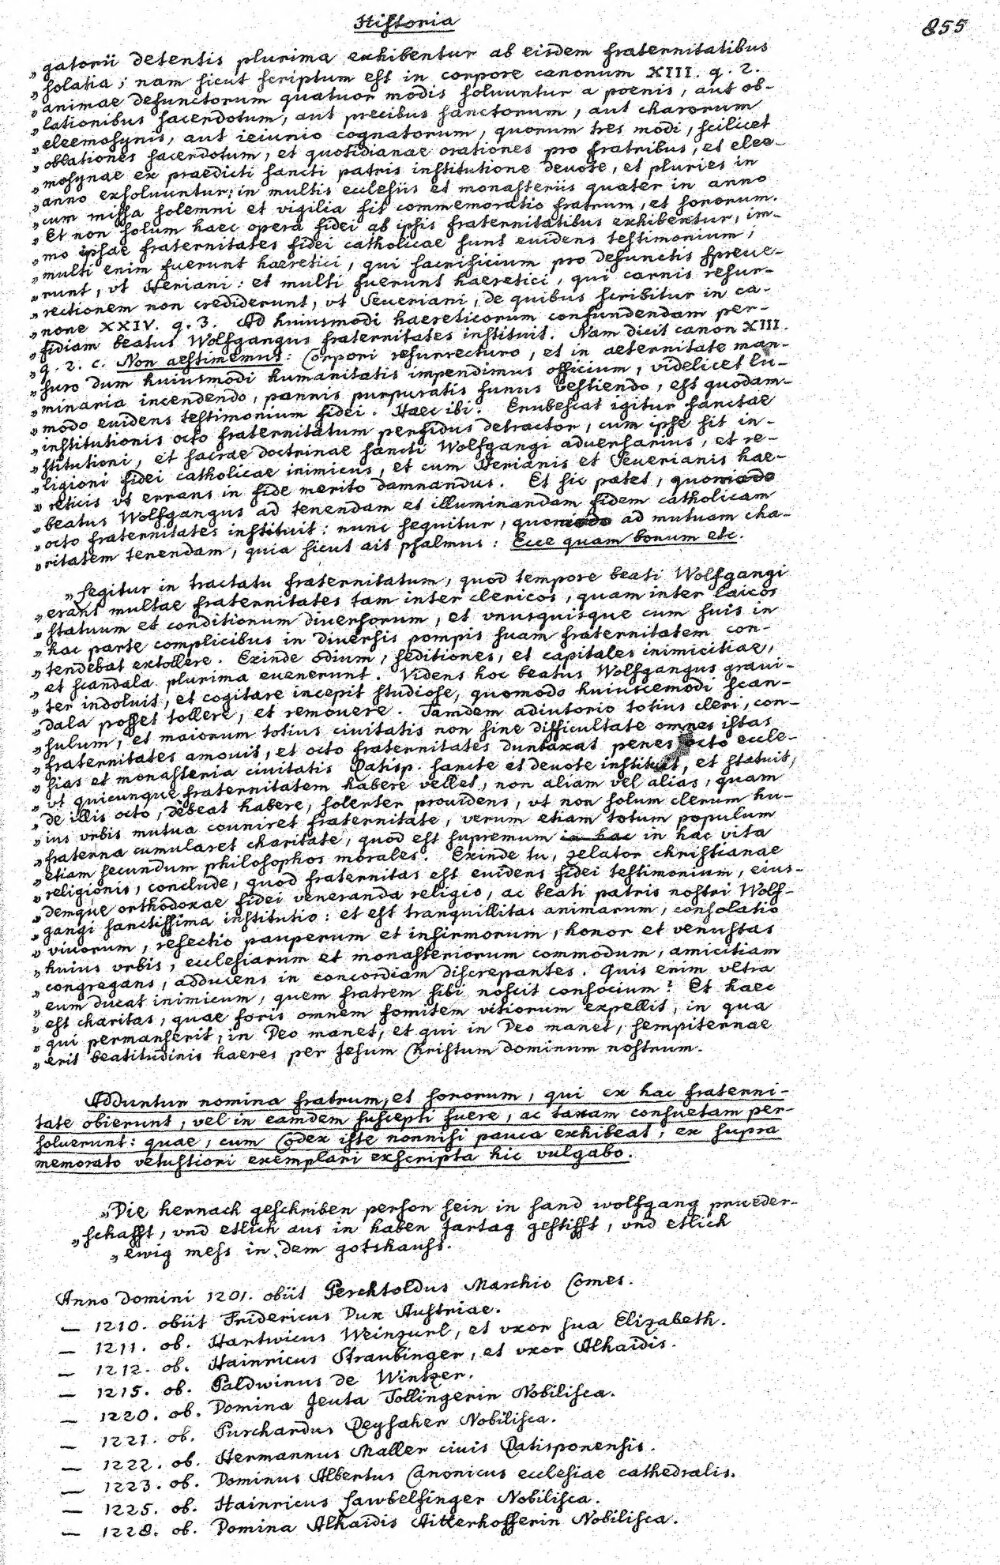 Historia
855
„ gatorii detentis plurima exhibentur ab eisdem fraternitatibus
„ solatia; nam sicut scriptum est in corpore canonum XIII. q. 2.
„ animae defunctorum quatuor modis soluuntur a poenis, aut ob-
„ lationibus sacerdotum, aut precibus sanctorum, aut charorum
„ eleemosynis, aut ieiunio cognatorum, quorum tres modi, scilicet
„ oblationes sacerdotum, et quotidianae orationes pro fratribus, et elee-
„ mosynae ex praedicti sancti patris institutione deuote, et pluries in
„ anno exsoluuntur; in multis ecclesiis et monasteriis quater in anno
„ cum missa solemni et vigilia fit commemoratio fratrum, et sororum.
„ Et non solum haec opera fidei ab ipsis fraternitatibus exhibentur, im-
„ mo ipsae fraternitates fidei catholicae sunt euidens testimonium;
„ multi enim fuerunt haeretici, qui sacrificium pro defunctis spreue-
„ runt, vt Aeriani: et multi fuerunt haeretici, qui carnis resur-
„ rectionem non crediderunt, vt Seueriani, de quibus scribitur in ca-
„ none XXIV. q. 3. Ad huiusmodi haereticorum confundendam per-
„ fidiam beatus Wolfgangus fraternitates instituit. Nam dicit canon XIII.
„ q. 2. c. Non aestimemus: Corpori resurrecturo, et in aeternitate man-
„ suro dum huiusmodi humanitatis impendimus officium, videlicet lu-
„ minaria incendendo, pannis purpuratis funus vestiendo, est quodam-
„ modo euidens testimonium fidei. Haec ibi. Erubescat igitur sanctae
„ institutionis octo fraternitatum perfidus detractor, cum ipse sit in-
„ stitutioni, et sacrae doctrinae sancti Wolfgangi aduersarius, et re-
„ ligioni fidei catholicae inimicus, et cum Aerianis et Seuerianis hae-
„ reticis vt errans in fide merito damnandus. Et sic patet, quomodo
„ beatus Wolfgangus ad tenendam et illuminandam fidem catholicam
„ octo fraternitates instituit: nunc sequitur, quomodo ad mutuam cha-
„ ritatem tenendam, quia sicut ait psalmus: Ecce quam bonum etc.
„ Legitur in tractatu fraternitatum, quod tempore beati Wolfgangi
„ erant multae fraternitates tam inter clericos, quam inter laicos
„ statuum et conditionum diuersorum, et vnusquisque cum suis in
„ hac parte complicibus in diuersis pompis suam fraternitatem con-
„ tendebat extollere. Exinde odium, seditiones, et capitales inimicitiae,
„ et scandala plurima euenerunt. Videns hoc beatus Wolfgangus graui-
„ ter indoluit, et cogitare incepit studiose, quomodo huiuscemodi scan-
„ dala posset tollere, et remouere. Tamdem adiutorio totius cleri, con-
„ sulum, et maiorum totius ciuitatis non sine difficultate omnes istas
„ fraternitates amouit, et octo fraternitates duntaxat penes octo eccle-
„ sias et monasteria ciuitatis Ratisp. sancte et deuote instituit, et statuit,
„ vt quicunque fraternitatem habere vellet, non aliam vel alias, quam
„ de illis octo, debeat habere, solerter prouidens, vt non solum clerum hu-
„ ius vrbis mutua couniret fraternitate, verum etiam totum populum
„ fraterna cumularet charitate, quod est supremum in hac in hac vita
„ etiam secundum philosophos morales. Exinde tu, zelator christianae
„ religionis, conclude, quod fraternitas est euidens fidei testimonium, eius-
„ demque orthodoxae fidei veneranda religio, ac beati patris nostri Wolf-
„ gangi sanctissima institutio: et est tranquillitas animarum, consolatio
„ viuorum, refectio pauperum et infirmorum, honor et venustas
„ huius vrbis, ecclesiarum et monasteriorum commodum, amicitiam
„ congregans, adducens in concordiam discrepantes. Quis enim vltra
„ eum ducat inimicum, quem fratrem sibi noscit consocium? Et haec
„ est charitas, quae foris omnem fomitem vitiorum expellit, in qua
„ qui permanserit, in Deo manet, et qui in Deo manet, sempiternae
„ erit beatitudinis haeres per Jesum Christum dominum nostrum.
Adduntur nomina fratrum, et sororum, qui ex hac fraterni-
tate obierunt, vel in eamdem suscepti fuere, ac taxam consuetam per-
soluerunt: quae, cum Codex iste nonnisi pauca exhibeat, ex supra
memorato vetustiori exemplari exscripta hic vulgabo.
„ Die hernach geschriben person sein in sand wolfgang prueder-
„ schafft, vnd etlich aus in haben Jartag gestifft, vnd etlich
„ ewig mess in dem gotshauss.
Anno domini 1201. obiit Perchtoldus Marchio Comes.
— 1210. obiit Fridericus Dux Austriae.
— 1211. ob. Hartwicus Weinzurl, et vxor sua Elizabeth.
— 1212. ob. Hainricus Straubinger, et vxor Alhaidis.
— 1215. ob. Paldwinus de Wintzer.
— 1220. ob. Domina Jeuta Tollingerin Nobilista.
— 1221. ob. Purchardus Reysaher Nobilista.
— 1222. ob. Hermannus Maller ciuis Ratisponensis.
— 1223. ob. Dominus Albertus Canonicus ecclesiae cathedralis.
— 1225. ob. Hainricus Sawbelfinger Nobilista.
— 1228. ob. Domina Alhaidis Aitterhofferin Nobilista.